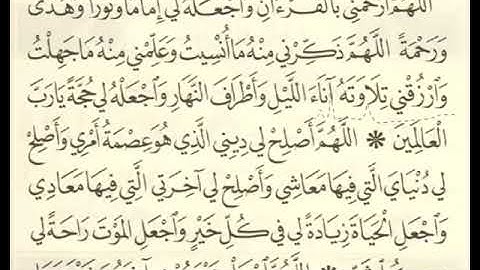 اللَّهُمَّ ارْحَمْنِي بِالْقُرْءَانِ وَاجْعَلْهُ لِي إِمَامًا وَنُورًا وَهُدًى
وَرَحْمَةً اللَّهُمَّ ذَكِّرْنِي مِنْهُ مَا أُنْسِيتُ وَعَلِّمْنِي مِنْهُ مَا جَهِلْتُ
وَارْزُقْنِي تِلَاوَتَهُ آنَاءَ اللَّيْلِ وَأَطْرَافَ النَّهَارِ وَاجْعَلْهُ لِي حُجَّةً يَا رَبَّ
الْعَالَمِينَ ❋ اللَّهُمَّ أَصْلِحْ لِي دِينِي الَّذِي هُوَ عِصْمَةُ أَمْرِي وَأَصْلِحْ
لِي دُنْيَايَ الَّتِي فِيهَا مَعَاشِي وَأَصْلِحْ لِي آخِرَتِي الَّتِي فِيهَا مَعَادِي
وَاجْعَلِ الْحَيَاةَ زِيَادَةً لِي فِي كُلِّ خَيْرٍ وَاجْعَلِ الْمَوْتَ رَاحَةً لِي